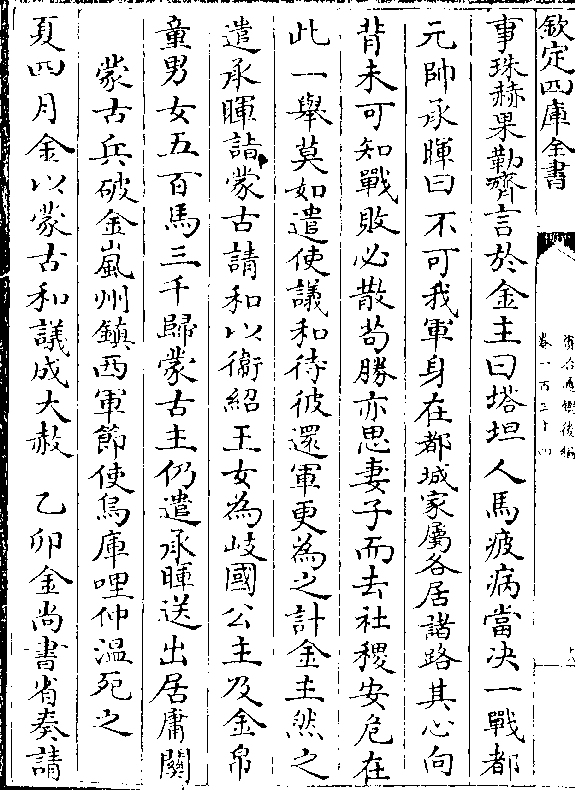 欽定四庫全書
資治通鑑後編
卷一百三十四
事珠赫果勒齊言於金主曰塔坦人馬疲病當决一戰都
元帥承暉曰不可我軍身在都城家屬各居諸路其心向
背未可知戰敗必散茍勝亦思妻子而去社稷安危在
此一舉莫如遣使議和待彼還軍更為之計金主然之
遣承暉詣蒙古請和以衛紹王女為岐國公主及金帛
童男女五百馬三千歸蒙古主仍遣承暉送出居庸關
蒙古兵破金嵐州鎮西軍節使烏庫哩仲溫死之
夏四月金以蒙古和議成大赦 乙卯金尚書省奏請